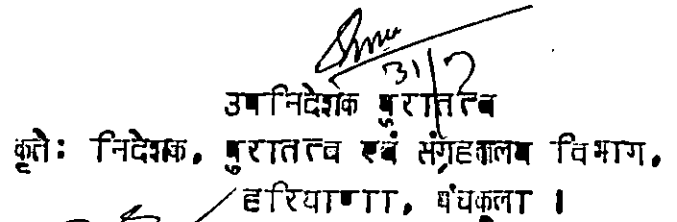 31/7
उपनिदेशक पुरातत्व
कृते: निदेशक, पुरातत्व एवं संग्रहालय विभाग,
हरियाणा, पंचकूला ।